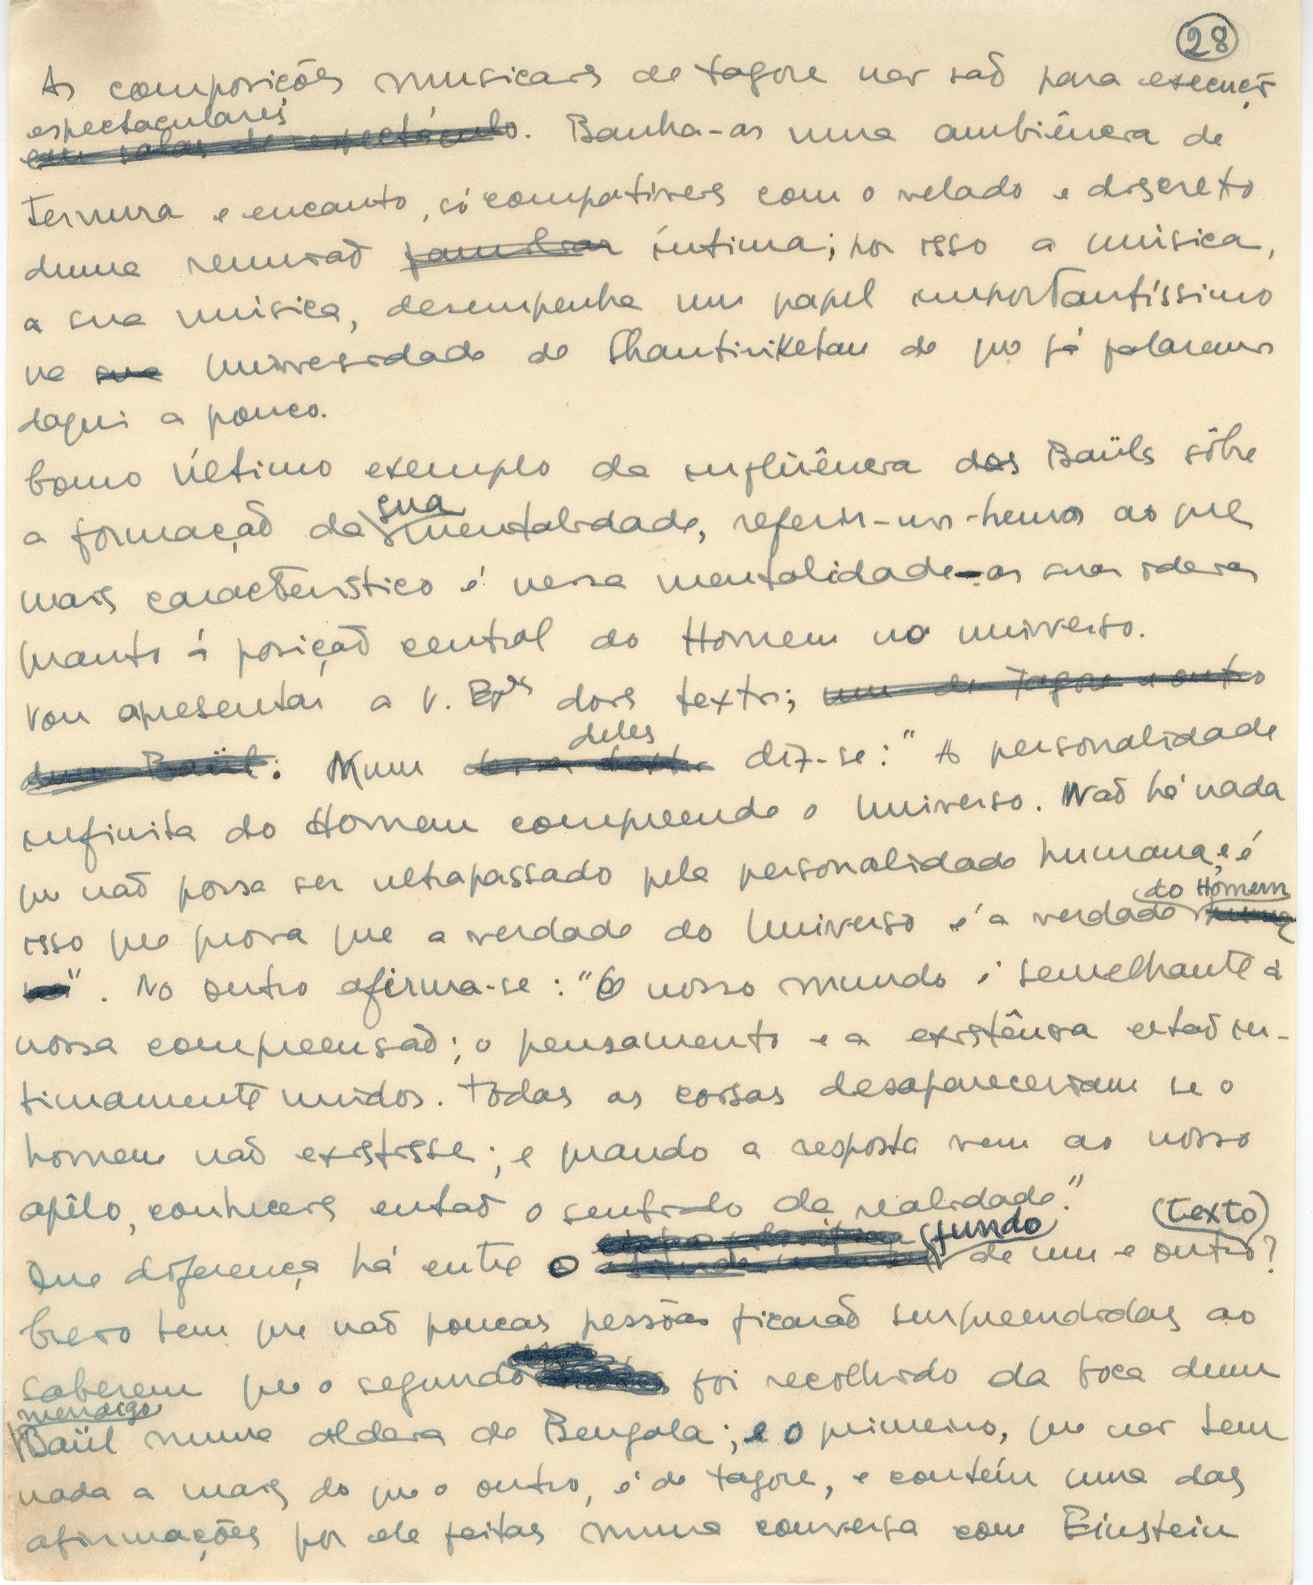 28
As composições musicais de Tagore não são para execução
espectaculares
em salas de espectáculo. Banha-as uma ambiência de
ternura e encanto, só compatíveis com o velado e discreto
duma reunião familiar íntima; por isso a música,
a sua música, desempenha um papel importantíssimo
na sua Universidade de Shantiniketan de que já falaremos
daqui a pouco.
Como último exemplo da influência dos Baüls sôbre
a formação da sua mentalidade, referir-nos-hemos ao que
mais característico é nessa mentalidade - as suas ideias
quanto á posição central do Homem no universo.
Vou apresentar a V. Exªs dois textos; um de Tagore e outro
dum Baül: Num deles diz-se: "A personalidade
infinita do Homem compreende o Universo. Não há nada
que não possa ser ultrapassado pela personalidade humana, e é
isso que prova que a verdade do Universo é a verdade do Homem
". No outro afirma-se: "O nosso mundo é semelhante á
nossa compreensão; o pensamento e a existência estão in-
timamente unidos. Todas as coisas desapareceriam se o
homem não existisse; e quando a resposta vem ao nosso
apêlo, conheceis então o sentido da realidade."
Que diferença há entre o fundo de um e outro (texto)?
Creio bem que não poucas pessôas ficarão surpreendidas ao
saberem que o segundo foi recolhido da boca dum
mendigo
Baül numa aldeia de Bengala; e o primeiro, que não tem
nada a mais do que o outro, é de Tagore, e contém uma das
afirmações por ele feitas numa conversa com Einstein